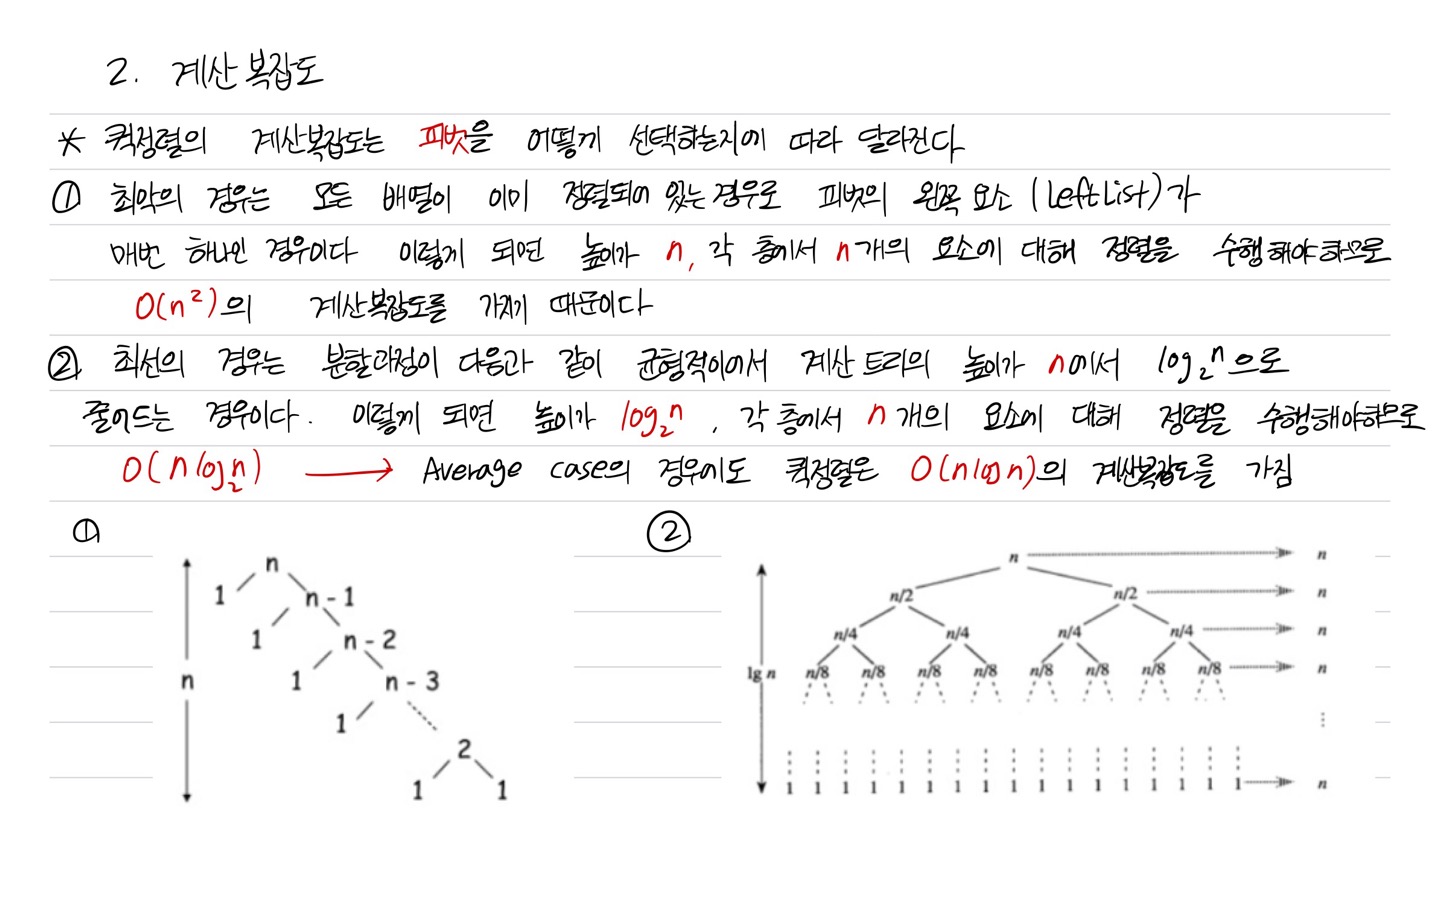 2. 계산 복잡도
* 퀵정렬의 계산복잡도는 피벗을 어떻게 선택하는지에 따라 달라진다
① 최악의 경우는 모든 배열이 이미 정렬되어 있는 경우로 피벗의 왼쪽 요소 (Left List)가
매번 하나인 경우이다 이렇게 되면 높이가 n, 각 층에서 n개의 요소에 대해 정렬을 수행해야하므로
O(n²)의 계산복잡도를 가지기 때문이다
② 최선의 경우는 분할과정이 다음과 같이 균형적이어서 계산 트리의 높이가 n에서 log₂n으로
줄어드는 경우이다. 이렇게 되면 높이가 log₂n, 각 층에서 n개의 요소에 대해 정렬을 수행해야하므로
O(n log₂n) → Average case의 경우에도 퀵정렬은 O(nlogn)의 계산복잡도를 가짐
①
n
1 n - 1
1 n - 2
n 1 n - 3
1
2
1 1
②
n n
n/2 n/2 n
n/4 n/4 n/4 n/4 n
lg n n/8 n/8 n/8 n/8 n/8 n/8 n/8 n/8 n
⋮
1 1 1 1 1 1 1 1 1 1 1 1 1 1 1 1 1 n